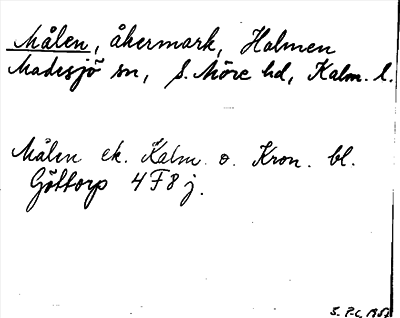 Målen, åkermark, Holmen
Madesjö sn, S. Möre hd, Kalm. l.
Målen ek. Kalm. o. Kron. bl.
Göttorp 4F8j.
S. P-L 195